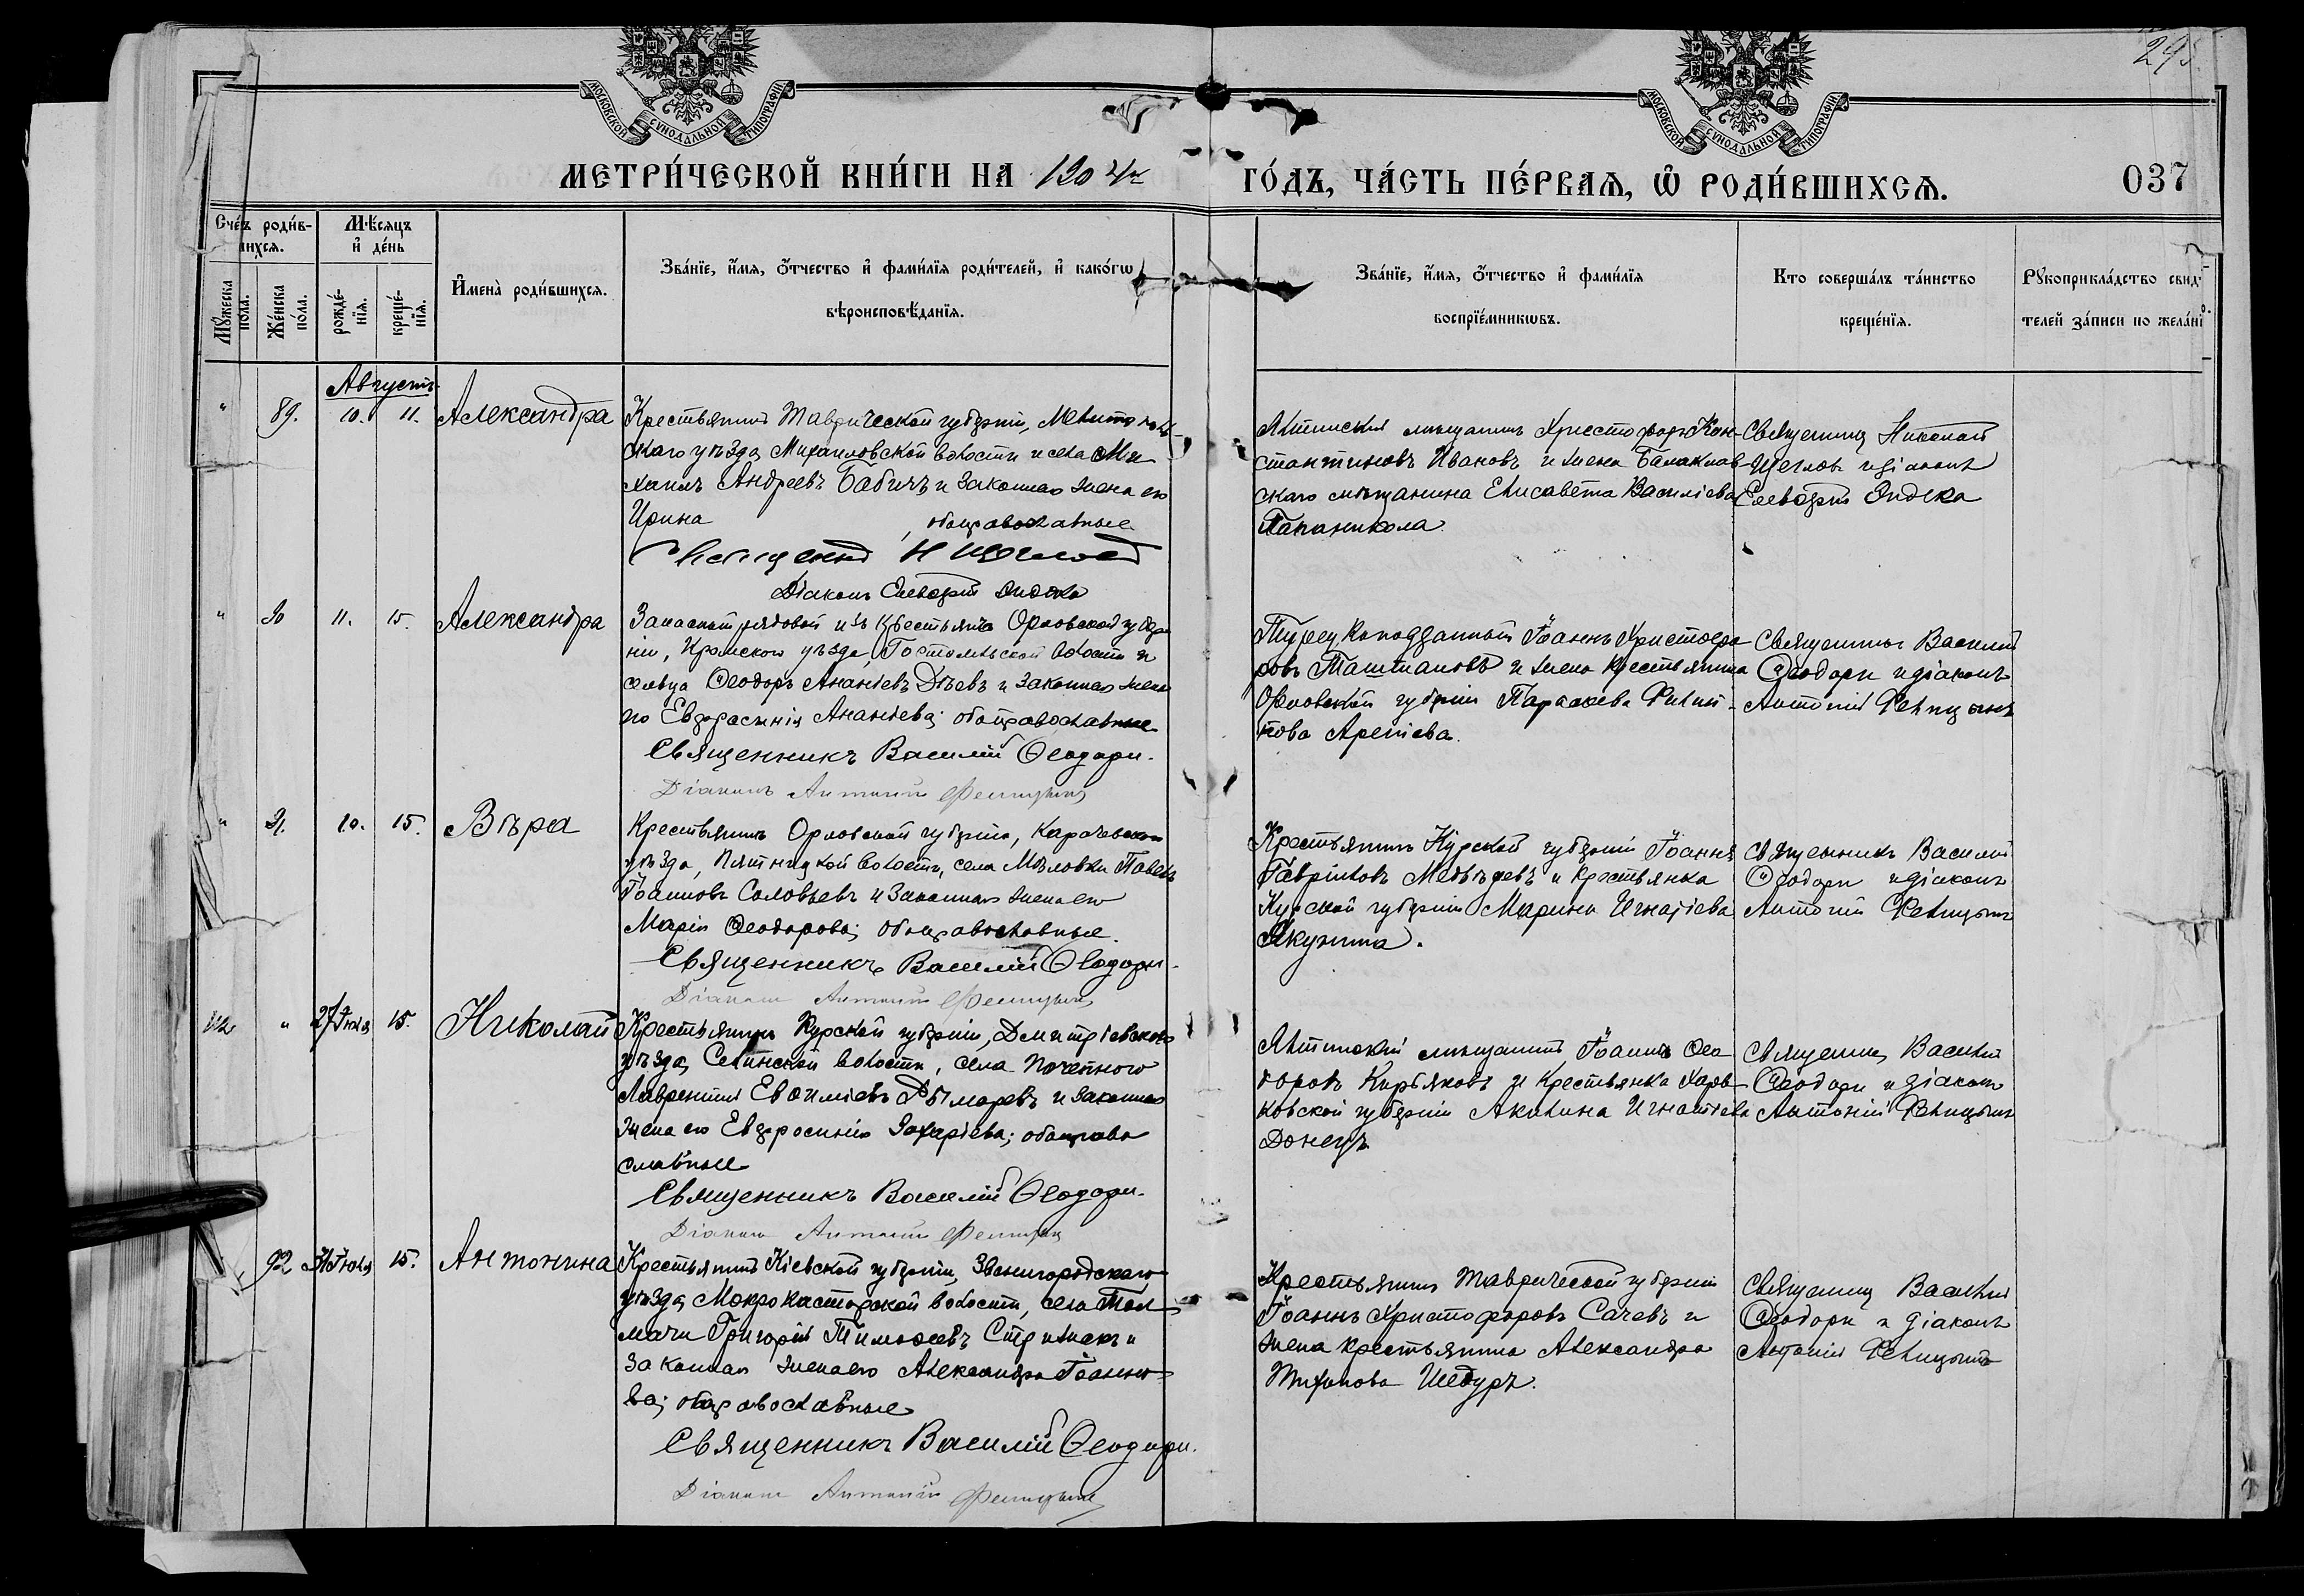 293
МОСКОВСКОЙ СѴНОДАЛЬНОЙ ТИПОГРАФІИ
МОСКОВСКОЙ СѴНОДАЛЬНОЙ ТИПОГРАФІИ
МЕТРИ́ЧЕСКОЙ КНИ́ГИ НА 1904 ГО́ДЪ, ЧА́СТЬ ПЕ́РВАѦ, Ѡ҆ РОДИ́ВШИХСѦ.
037
Счетъ роди́в-
шихсѧ.
Мꙋ́жеска
по́ла.
Же́нска
по́ла.
Мѣ́сѧцъ
и҆ де́нь
рожде́-
нїѧ.
креще́-
нїѧ.
И҆мена̀ роди́вшихсѧ.
Зва́нїе, и҆́мѧ, ѻ҆́тчество и҆ фами́лїѧ роди́телей, и҆ како́гѡ
вѣроисповѣ́данїѧ.
Зва́нїе, и҆́мѧ, ѻ҆́тчество и҆ фами́лїѧ
воспрїе́мникѡвъ.
Кто соверша́лъ та́инство
креще́нїѧ.
Рꙋкоприкла́дство свид
телей за́писи по жела́нї
Августъ
" 89. 10. 11. Александра
Крестьянинъ Таврической губерніи, Мелитополь-
скаго уѣзда Михайловской волости и села Ми
хаилъ Андреевъ Бабичъ и законная жена его
Ирина, оба православные
Священникъ Н Щегловъ
Діаконъ Елевферій Индека
Ялтинскій мѣщанинъ Христофоръ Кон-
стантиновъ Ивановъ и жена Балаклав-
скаго мѣщанина Елисавета Василіева
Папаникола.
Священникъ Николай
Щегловъ и діаконъ
Елевферій Индека
" 90 11. 15. Александра
Запасный рядовой изъ крестьянъ Орловской губер
ніи, Кромскаго уѣзда, Гостомльской волости и
сельца Ѳеодоръ Ананіевъ Дѣевъ и законная жена
его Евфросинія Ананіева; оба православные
Священникъ Василій Ѳеодори.
Діаконъ Антоній Фелицынъ
Турецкоподданный Іоаннъ Христофо
ровъ Ташмановъ и жена крестьянина
Орловской губерніи Параскева Филип-
пова Арепіева.
Священникъ Василій
Ѳеодори и діаконъ
Антоній Фелицынъ
" 91. 10. 15. Вѣра
Крестьянинъ Орловской губерніи, Карачевскаго
уѣзда, Пятницкой волости, села Мѣловки Павелъ
Іоанновъ Соловьевъ и законная жена его
Марія Ѳеодорова; оба православные.
Священникъ Василій Ѳеодори.
Діаконъ Антоній Фелицынъ
Крестьянинъ Курской губерніи Іоаннъ
Гавріиловъ Медвѣдевъ и крестьянка
Курской губерніи Марина Игнатіева
Якунина.
Священникъ Василій
Ѳеодори и діаконъ
Антоній Фелицынъ
112 " 27 Іюля 15. Николай
Крестьянинъ Курской губерніи, Димитріевскаго
уѣзда, Селинской волости, села Почепного
Лаврентій Евфиміевъ Дымаревъ и законная
жена его Евфросинія Захаріева; оба право
славные
Священникъ Василій Ѳеодори.
Діаконъ Антоній Фелицынъ
Ялтинскій мѣщанинъ Іоаннъ Ѳео
доровъ Кирьяковъ и крестьянка Харь-
ковской губерніи Акилина Игнатіева
Донецъ.
Священникъ Василій
Ѳеодори и діаконъ
Антоній Фелицынъ
92 31 Іюля 15. Антонина
Крестьянинъ Кіевской губерніи, Звенигородскаго
уѣзда, Мокрокалигорской волости, села Тол
мачи Григорій Тимоѳеевъ Стрижакъ и
законная жена его Александра Іоанно-
ва; оба православные
Священникъ Василій Ѳеодори.
Діаконъ Антоній Фелицынъ
Крестьянинъ Таврической губерніи
Іоаннъ Христофоровъ Сачевъ и
жена крестьянина Александра
Тихонова Шедуръ.
Священникъ Василій
Ѳеодори и діаконъ
Антоній Фелицынъ